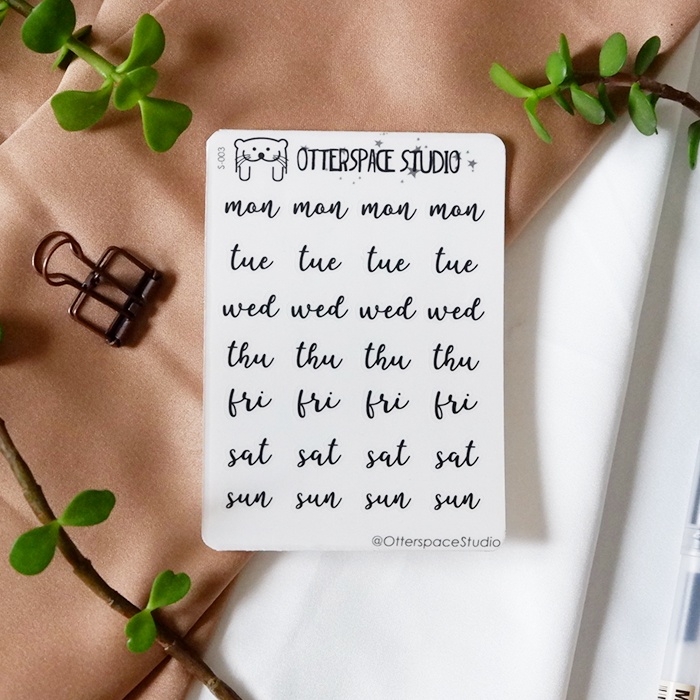 S-003
OTTERSPACE STUDIO
mon mon mon mon
tue tue tue tue
wed wed wed wed
thu thu thu thu
fri fri fri fri
sat sat sat sat
sun sun sun sun
@OtterspaceStudio